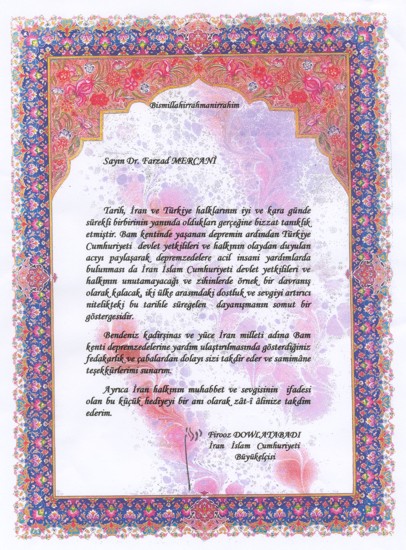 Bismillahirrahmanirrahim
Sayın Dr. Farzad MERCANİ
Tarih, İran ve Türkiye halklarının iyi ve kara günde
sürekli birbirinin yanında oldukları gerçeğine bizzat tanıklık
etmiştir. Bam kentinde yaşanan depremin ardından Türkiye
Cumhuriyeti devlet yetkilileri ve halkının olaydan duyulan
acıyı paylaşarak depremzedelere acil insani yardımlarda
bulunması da İran İslam Cumhuriyeti devlet yetkilileri ve
halkının unutamayacağı ve zihinlerde örnek bir davranış
olarak kalacak, iki ülke arasındaki dostluk ve sevgiyi artırıcı
nitelikteki bu tarihle süregelen dayanışmanın somut bir
göstergesidir.
Bendeniz kadirşinas ve yüce İran milleti adına Bam
kenti depremzedelerine yardım ulaştırılmasında gösterdiğiniz
fedakarlık ve çabalardan dolayı sizi takdir eder ve samimâne
teşekkürlerimi sunarım.
Ayrıca İran halkının muhabbet ve sevgisinin ifadesi
olan bu küçük hediyeyi bir anı olarak zât-i âlinize takdim
ederim.
Firooz DOWLATABADI
İran İslam Cumhuriyeti
Büyükelçisi